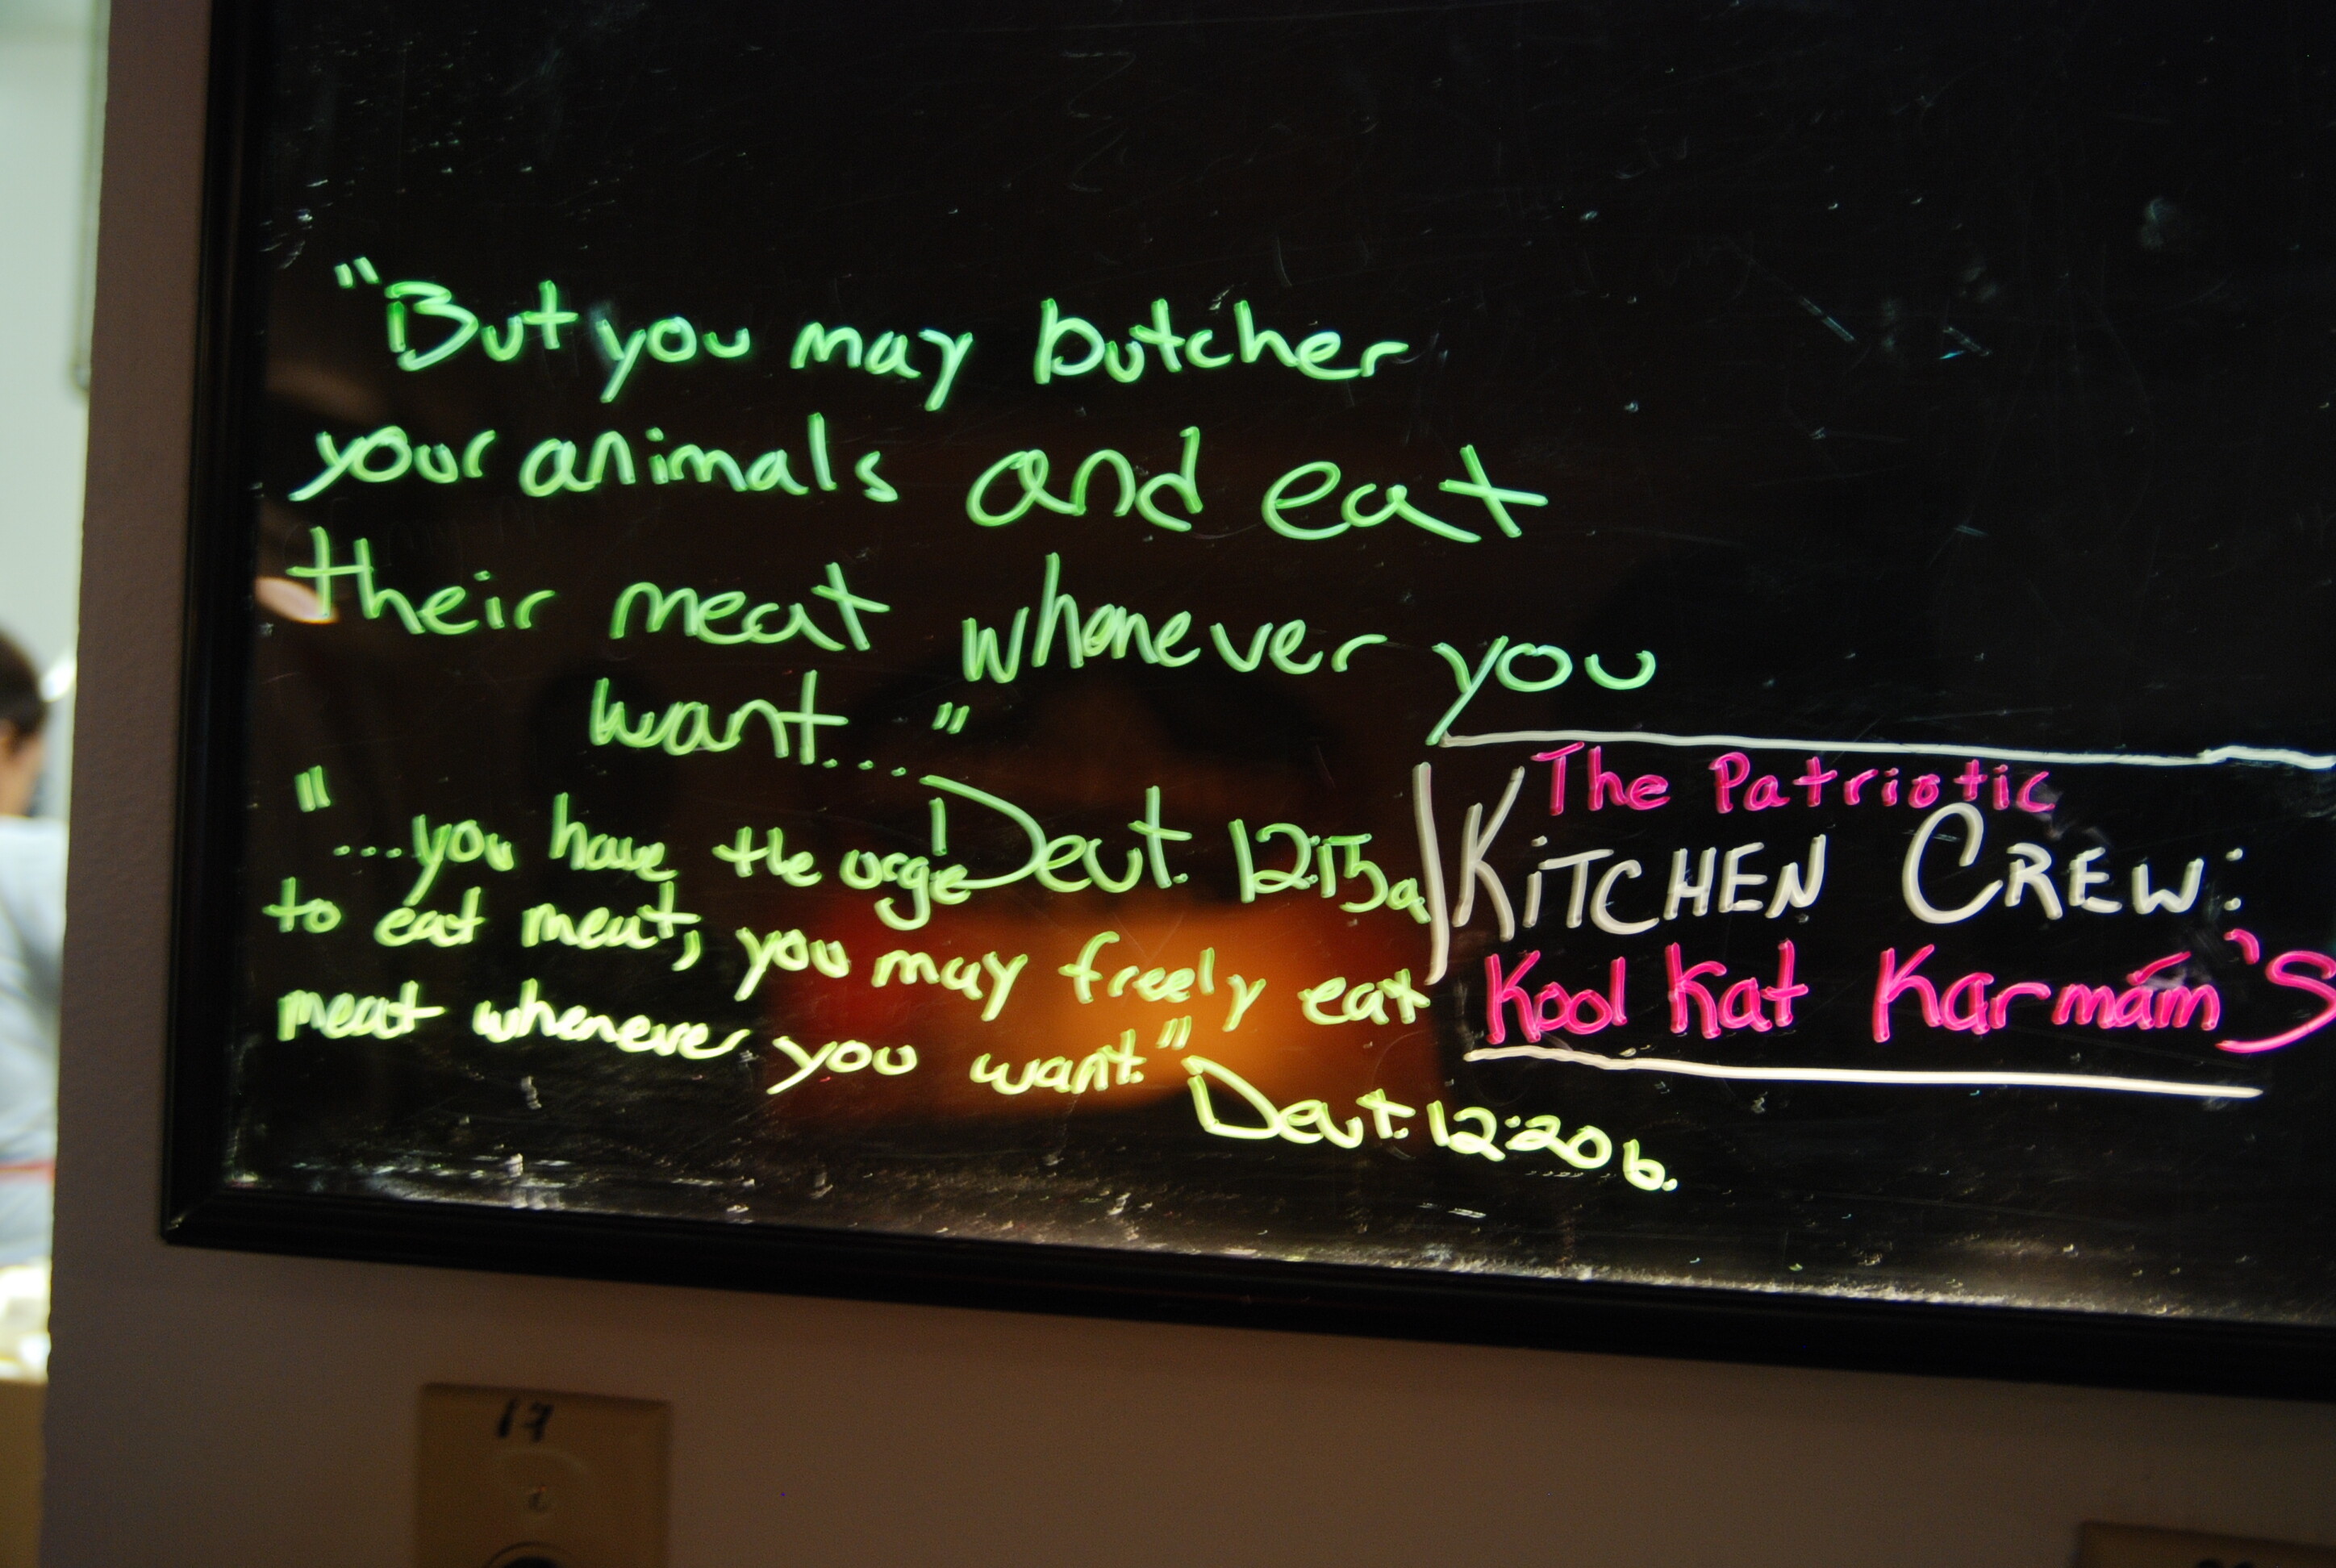 "But you may butcher
your animals and eat
their meat whenever you
want..."
Deut. 12:15a
"...you have the urge
to eat meat, you may freely eat
meat whenever you want." Deut. 12:20b.
The Patriotic
KiTCHEN CREW:
Kool Kat Karmám's
17